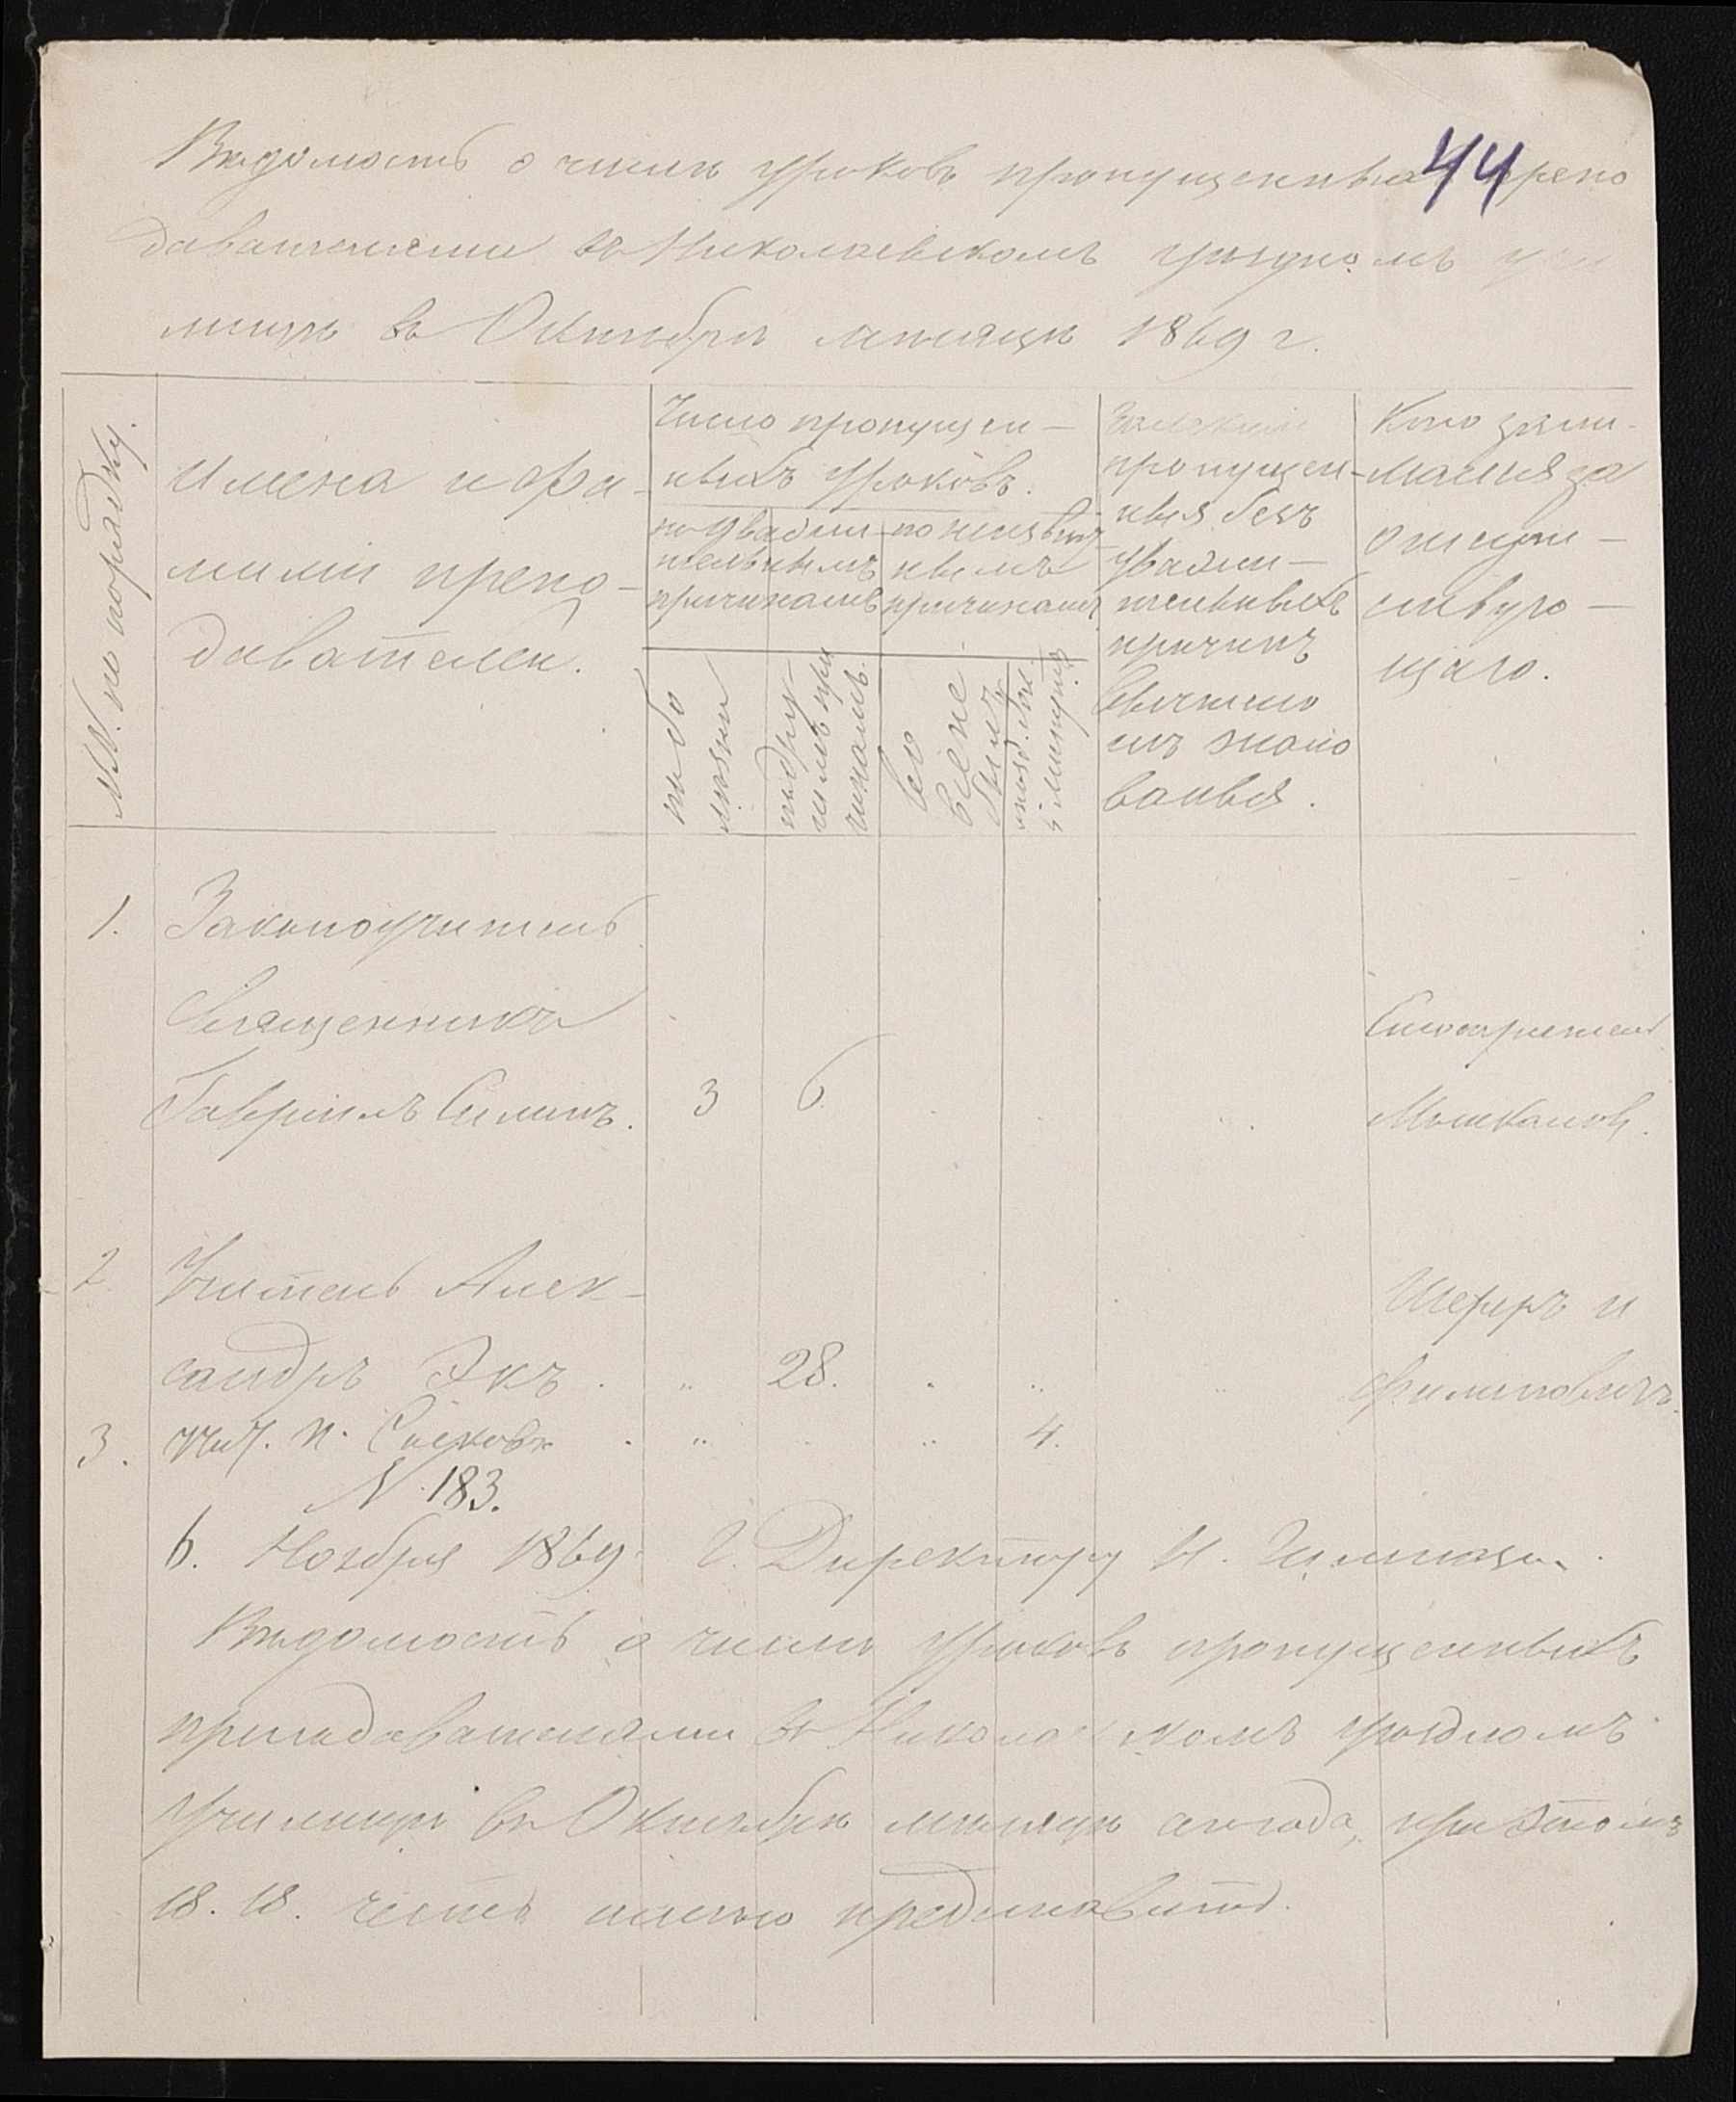 44
Вѣдомость о числѣ уроковъ пропущенныхъ препо
давателями въ Николаевскомъ уѣздномъ учи
лищѣ въ Октябрѣ мѣсяцѣ 1869 г.
№№ по порядку.
Имена и фа-
миліи препо-
давателей.
Число пропущен-
ныхъ уроковъ.
по уважи-
тельнымъ
причинамъ
по неизвѣст-
нымъ
причинамъ
по бо
лѣзни
по дру-
гимъ при
чинамъ.
со
всѣмъ
не былъ
опозд. бол.
5 минутъ
За
пропущен-
ныя безъ
уважи-
тельныхъ
причинъ
вычтено
изъ жало
ванья.
Кто зани-
мался за
отсут-
ствую-
щаго.
1. Законоучитель
Священникъ
Гавріилъ Силинъ. 3 6.
Мышкановъ.
2 Учитель Алек-
сандръ Экъ. „ 28. „ „ „
Шефръ и
Филиповичъ.
3. учит. п. „ „ „ 4.
N. 183.
6. Ноября 1869 Г. Директору Н. Гимназіи.
Вѣдомость о числѣ уроковъ пропущенныхъ
преподавателями въ Николаевскомъ уѣздномъ
училищѣ въ Октябрѣ мѣсяцѣ с. года, при этомъ
честь имѣю представить.